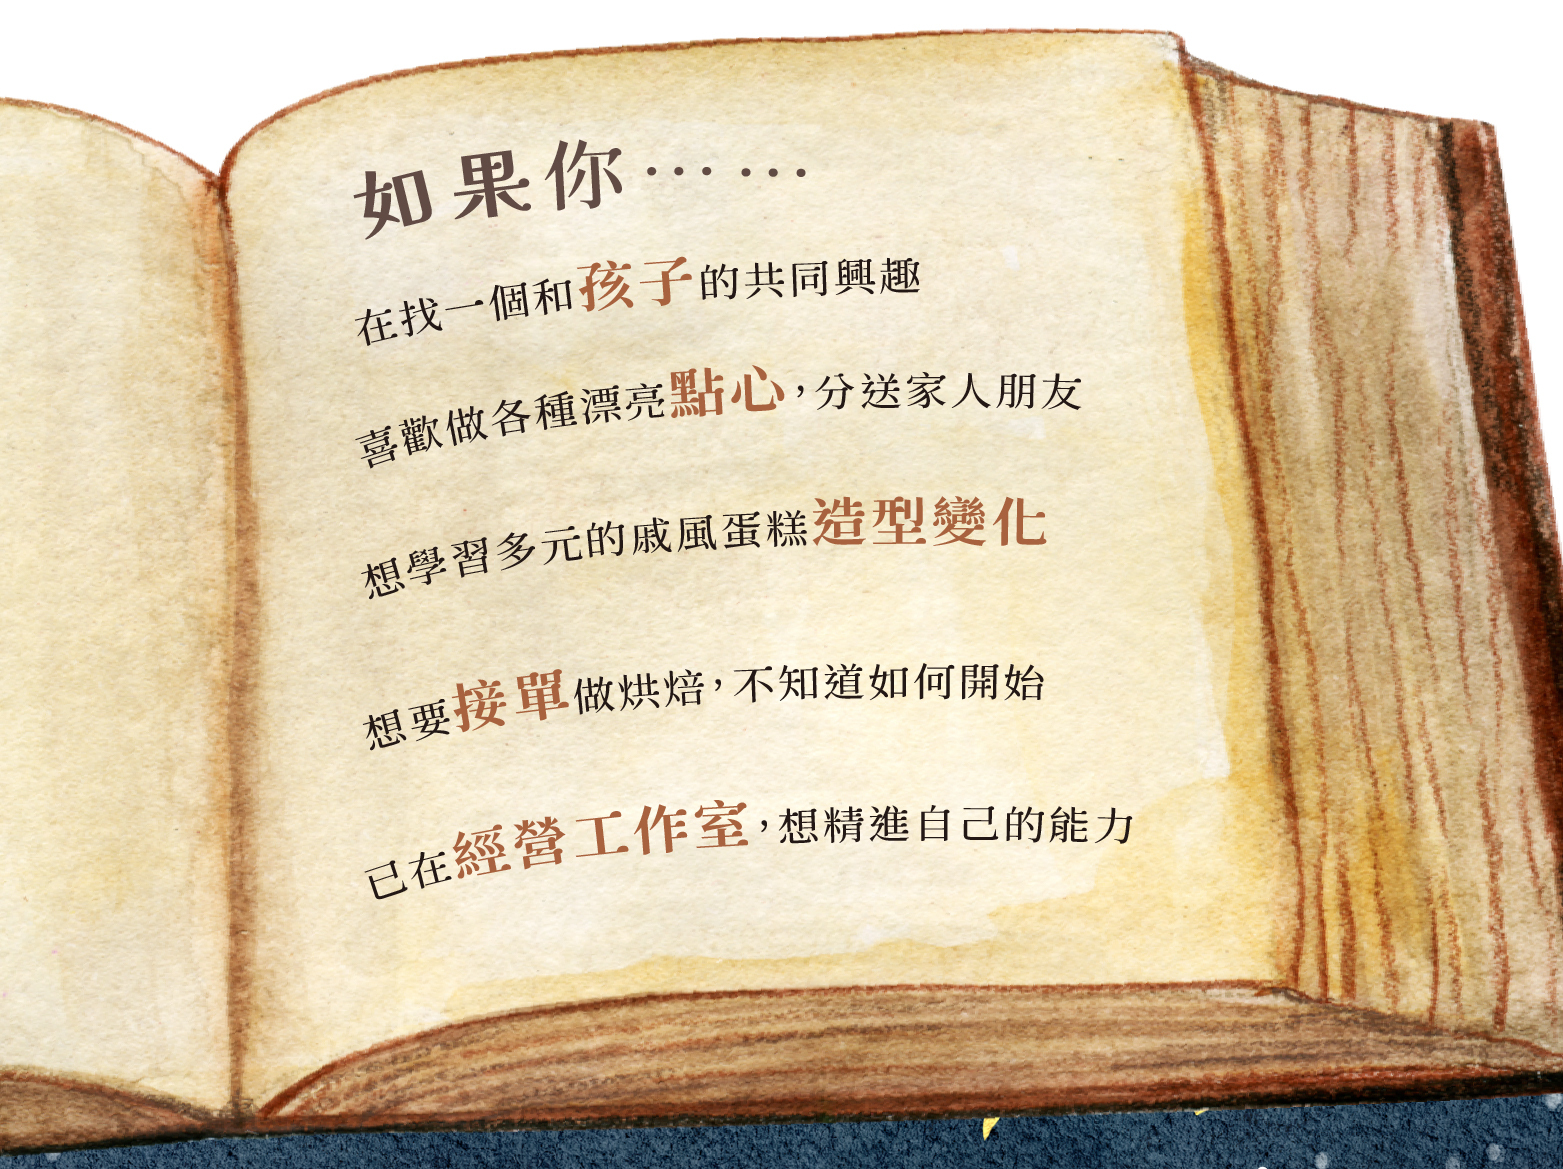 如果你⋯⋯
在找一個和孩子的共同興趣
喜歡做各種漂亮點心，分送家人朋友
想學習多元的戚風蛋糕造型變化
想要接單做烘焙，不知道如何開始
已在經營工作室，想精進自己的能力